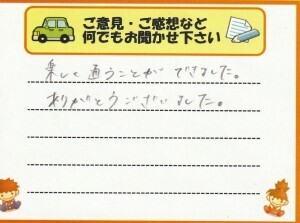 ご意見・ご感想など
何でもお聞かせ下さい
楽しく通うことができました。
ありがとうございました。